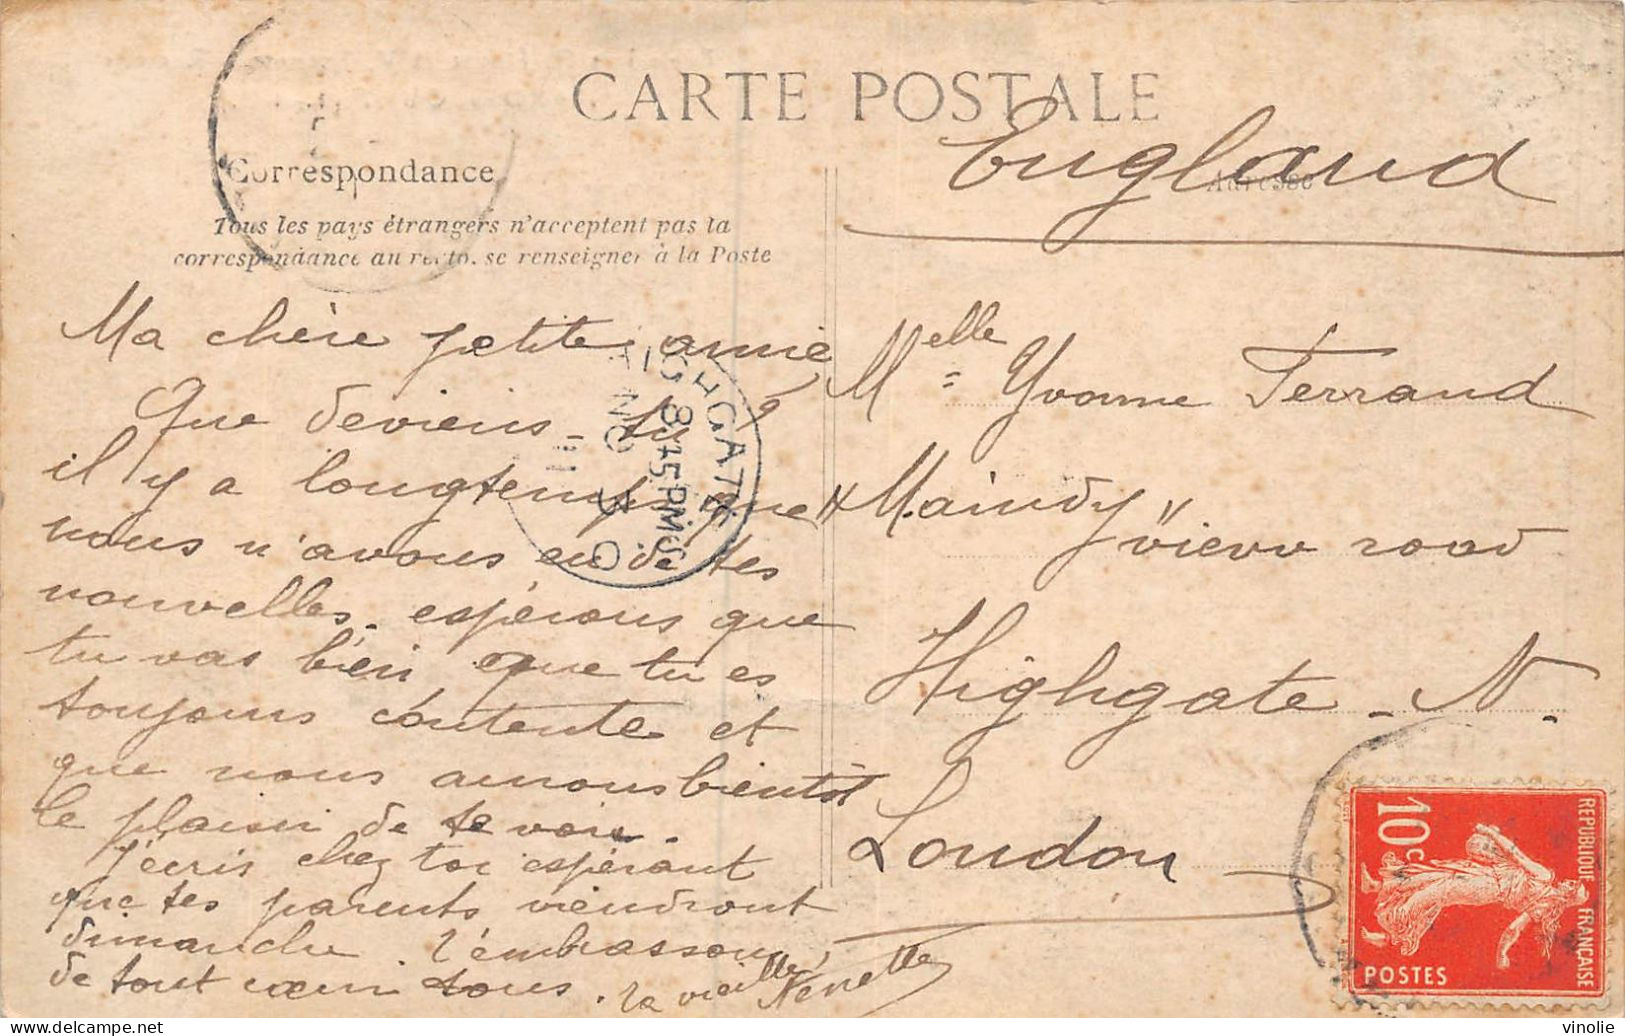 CARTE POSTALE
Correspondance
Adresse
Tous les pays étrangers n'acceptent pas la
correspondance au recto, se renseigner à la Poste
Ma chère petite amie
Que deviens-tu ?
il y a longtemps que
nous n'avons eu de tes
nouvelles. espérons que
tu vas bien que tu es
toujours contente et
que nous aurons bientôt
le plaisir de te voir.
J'écris chez toi espérant
que tes parents viendront
dimanche. T'embrassons
de tout cœur tous. ta vieille Nenette
England
Melle Yvonne Ferrand
"Maindy" view road
Highgate - N -
London
HIGHGATE
8 15 PM
NO
REPUBLIQUE FRANÇAISE
10c
POSTES
vinolie